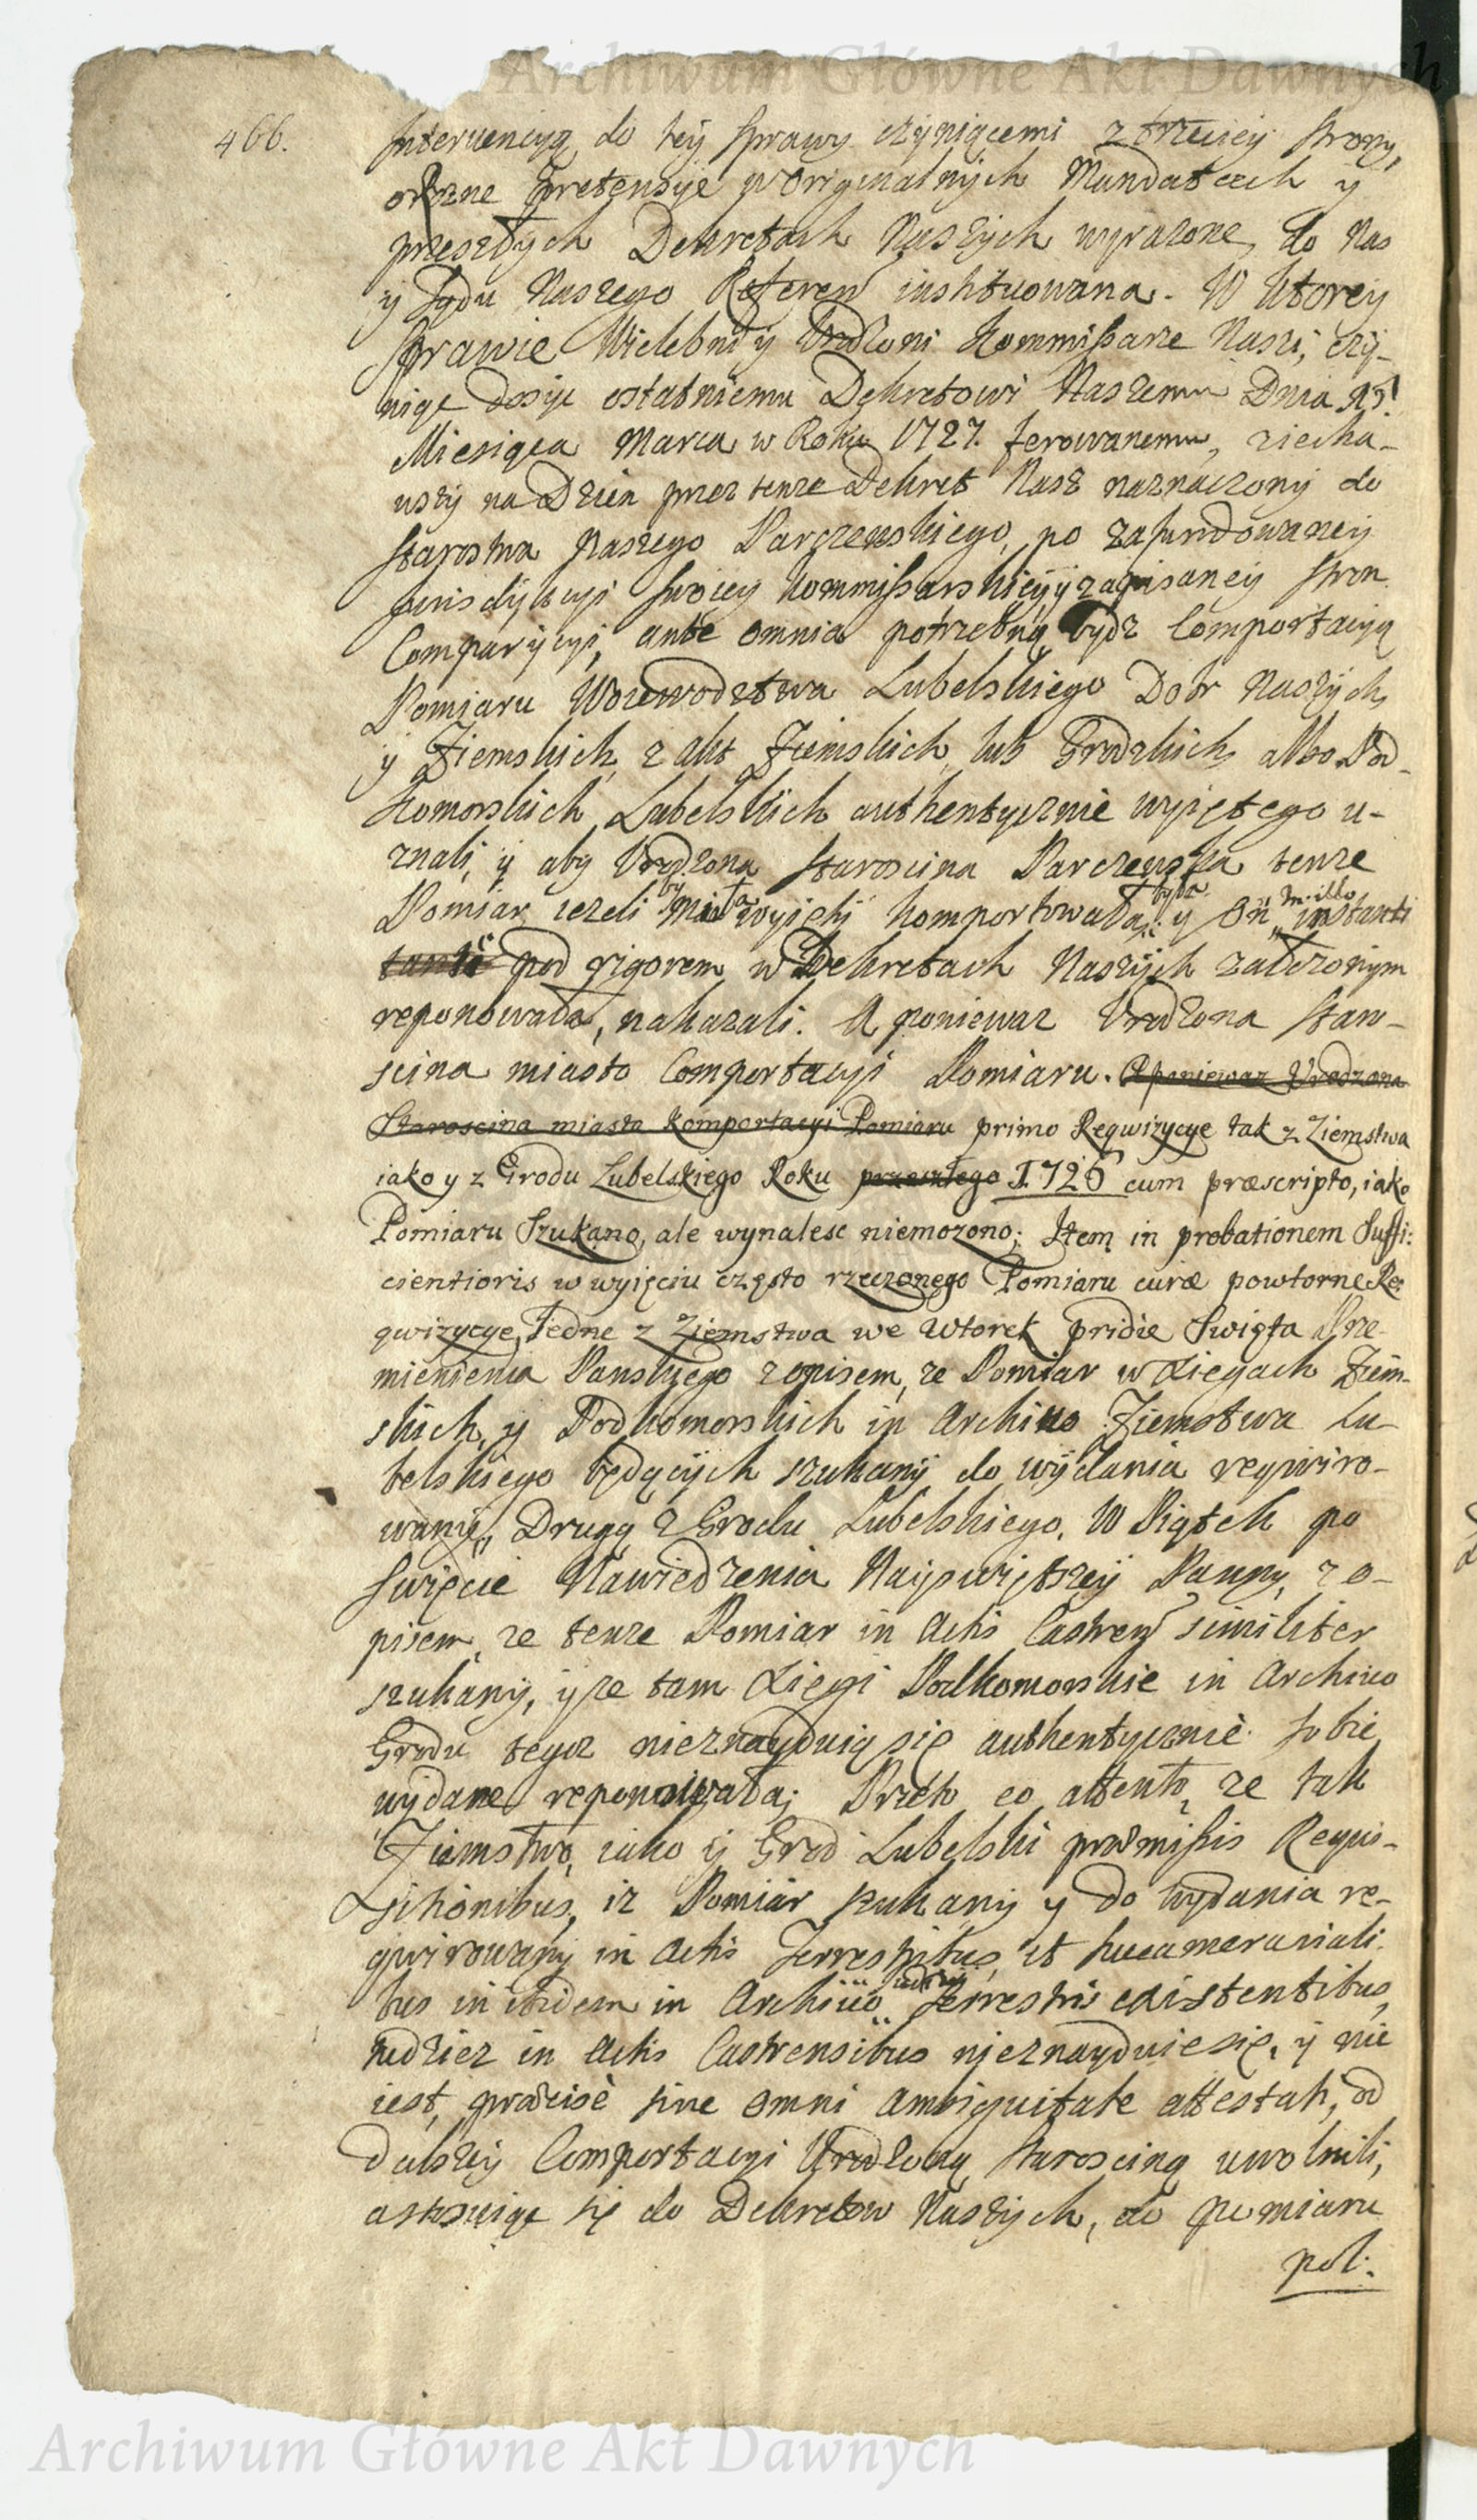 Archiwum Główne Akt Dawnych
466.
Interuencyą do tey sprawy czyniącemi z trzeciey strony,
orzne pretensye w Originalnych Mandatach y
przeszłych Dekretach Naszych wyrazone, do Nas
y Sądu Naszego Referen instituowana. W ktorey
Sprawie Wielebni y Urodzoni Kommissarze Nasi, czy-
niąc dosyc ostatniemu Dekretowi Naszemu Dnia
Miesiąca Marca w Roku 1727. ferowanemu, ziecha-
wszy na Dzien przez tenze Dekret Nasz naznaczony do
Starostwa Naszego Parczewskiego, po zafundowaney
Jurisdykcyi swoiey Kommissarskiey y zapisaney stron
Comparycyi, ante omnia potrzebną bydz Comportacyą
Pomiaru Woiewodztwa Lubelskiego Dobr Naszych
y Ziemskich z akt Ziemskich lub Grodzkich albo Pod-
komorskich Lubelskich authentycznie wyiętego u-
znali, y aby Urodzona Starościna Parczewska tenze
Pomiar iezeli by miała wyięty komportowała, y On in illo instanti
pod rigorem w Dekretach Naszych załozonym
reponowała, nakazali. A poniewaz Urodzona Staro-
scina miasto Comportacyi Pomiaru. A poniewaz Urodzona
Staroscina miasto komportacyi Pomiaru primo Reqwizycye tak z Ziemstwa
iako y z Grodu Lubelskiego Roku przeszłego 1726 cum præscripto, iako
Pomiaru Szukano, ale wynalesc niemozono; Item in probationem Suffi:
cientioris w wyięciu często rzeczonego Pomiaru curæ powtorne Re:
qwizycye, Jedne z Ziemstwa we Wtorek pridie Swięta Prze-
mienienia Panskiego z opisem, ze Pomiar w Xiegach Ziem-
skich, y Podkomorskich in Archivo Ziemstwa Lu-
belskiego będących szukany do wydania reqwiro-
wany, Drugą z Grodu Lubelskiego. W Piątek po
Swięcie Nawiedzenia Nayswiętszey Panny, z o-
pisem, ze tenze Pomiar in Actis Castren similiter
szukany, y ze tam Xiegi Podkomorskie in Archivo
Grodu tegoz nieznayduią się authentycznie sobie
wydane reponowała; Przeto eo attento, ze tak
Ziemstwo, iako y Grod Lubelski præmissis Requi-
sitionibus, iz Pomiar szukany y do wydania re-
qwirowany in Actis Terrestribus, et Succamerariali-
bus in ibidem in Archivo Terrestri existentibus,
tudziez in Actis Castrensibus nieznayduie się, y nie
iest, præcisè sine omni ambiguitate attestati, od
dalszey Comportacyi Urodzoną Staroscinę uwolnili,
a stosuiąc się do Dekretow Naszych, do pomiaru
pol:
Archiwum Główne Akt Dawnych